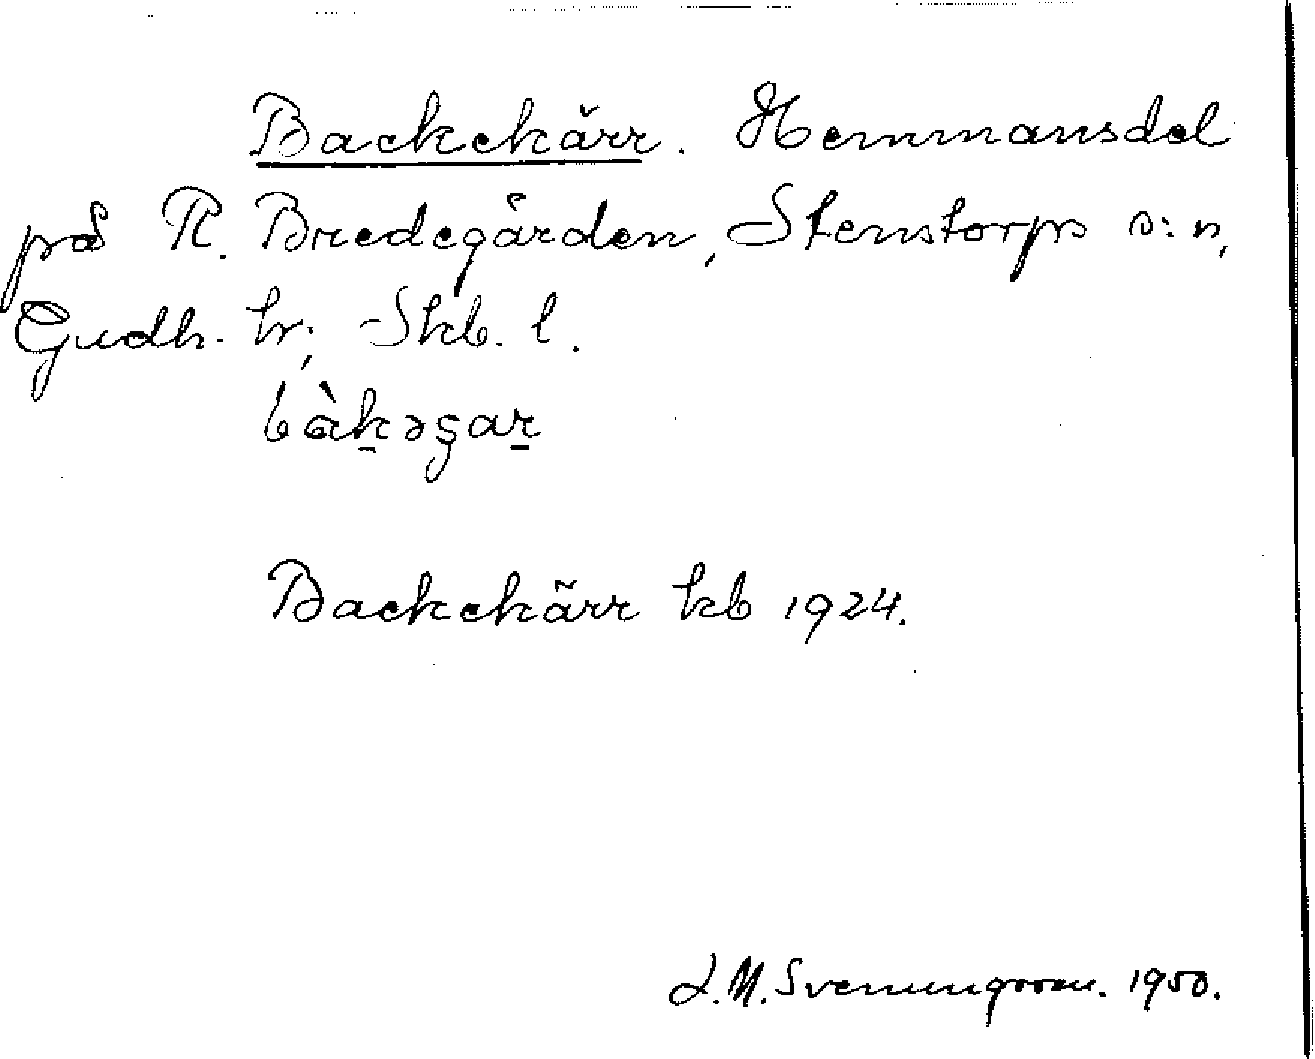 Backekärr. Hemmansdel
på R. Bredegården, Stenstorps s:n,
Gudh. hr; Skb. l.
bàk̲əʂar̲
Backekärr kb 1924.
J. M. Svenungsson. 1950.